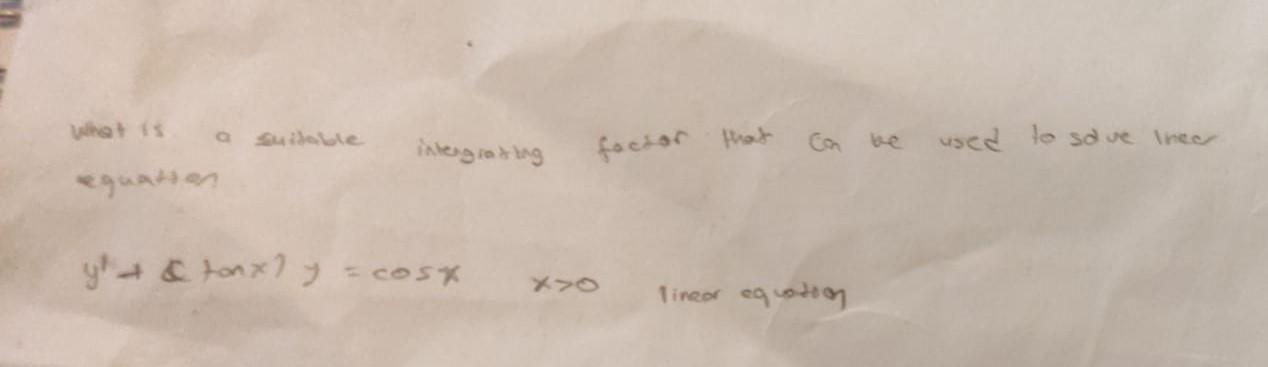 What is a suitable intergrating factor that can be used to solve linear
equation
y' + (tanx) y = cosx x>0 linear equation